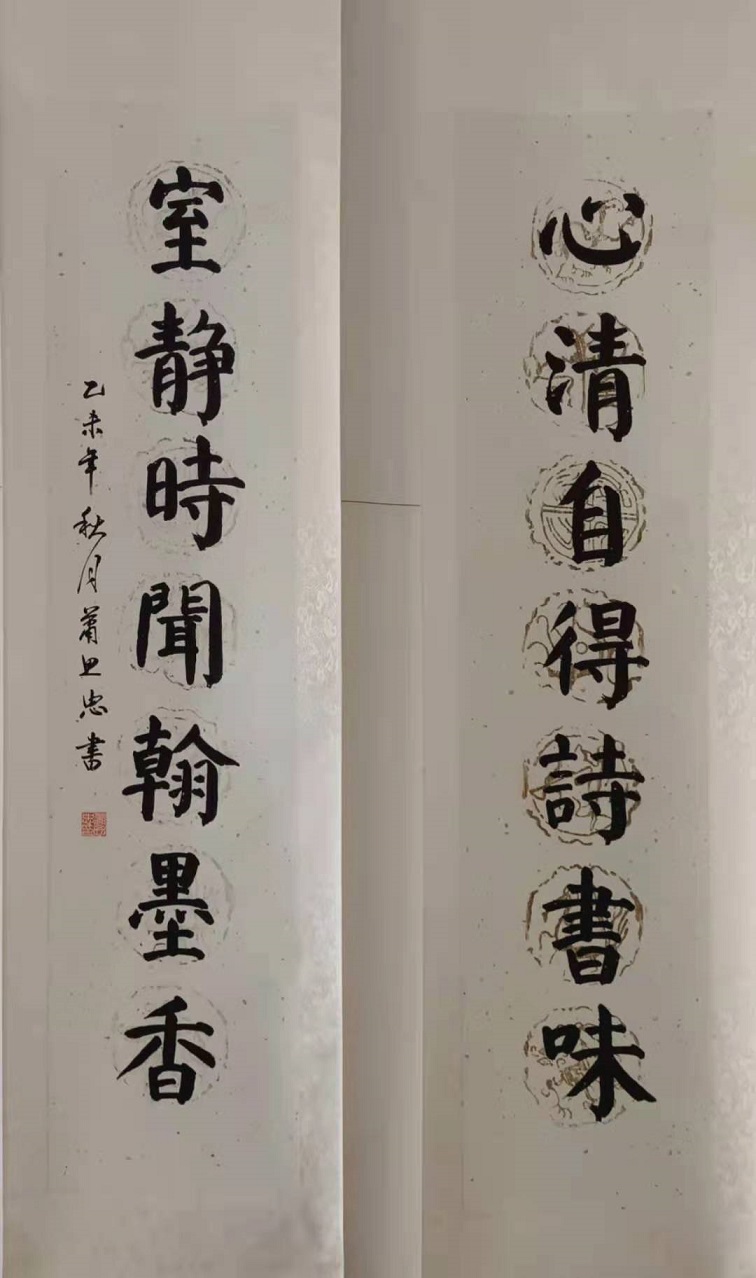 心清自得詩書味
室静時聞翰墨香
乙未年秋月蕭思忠書